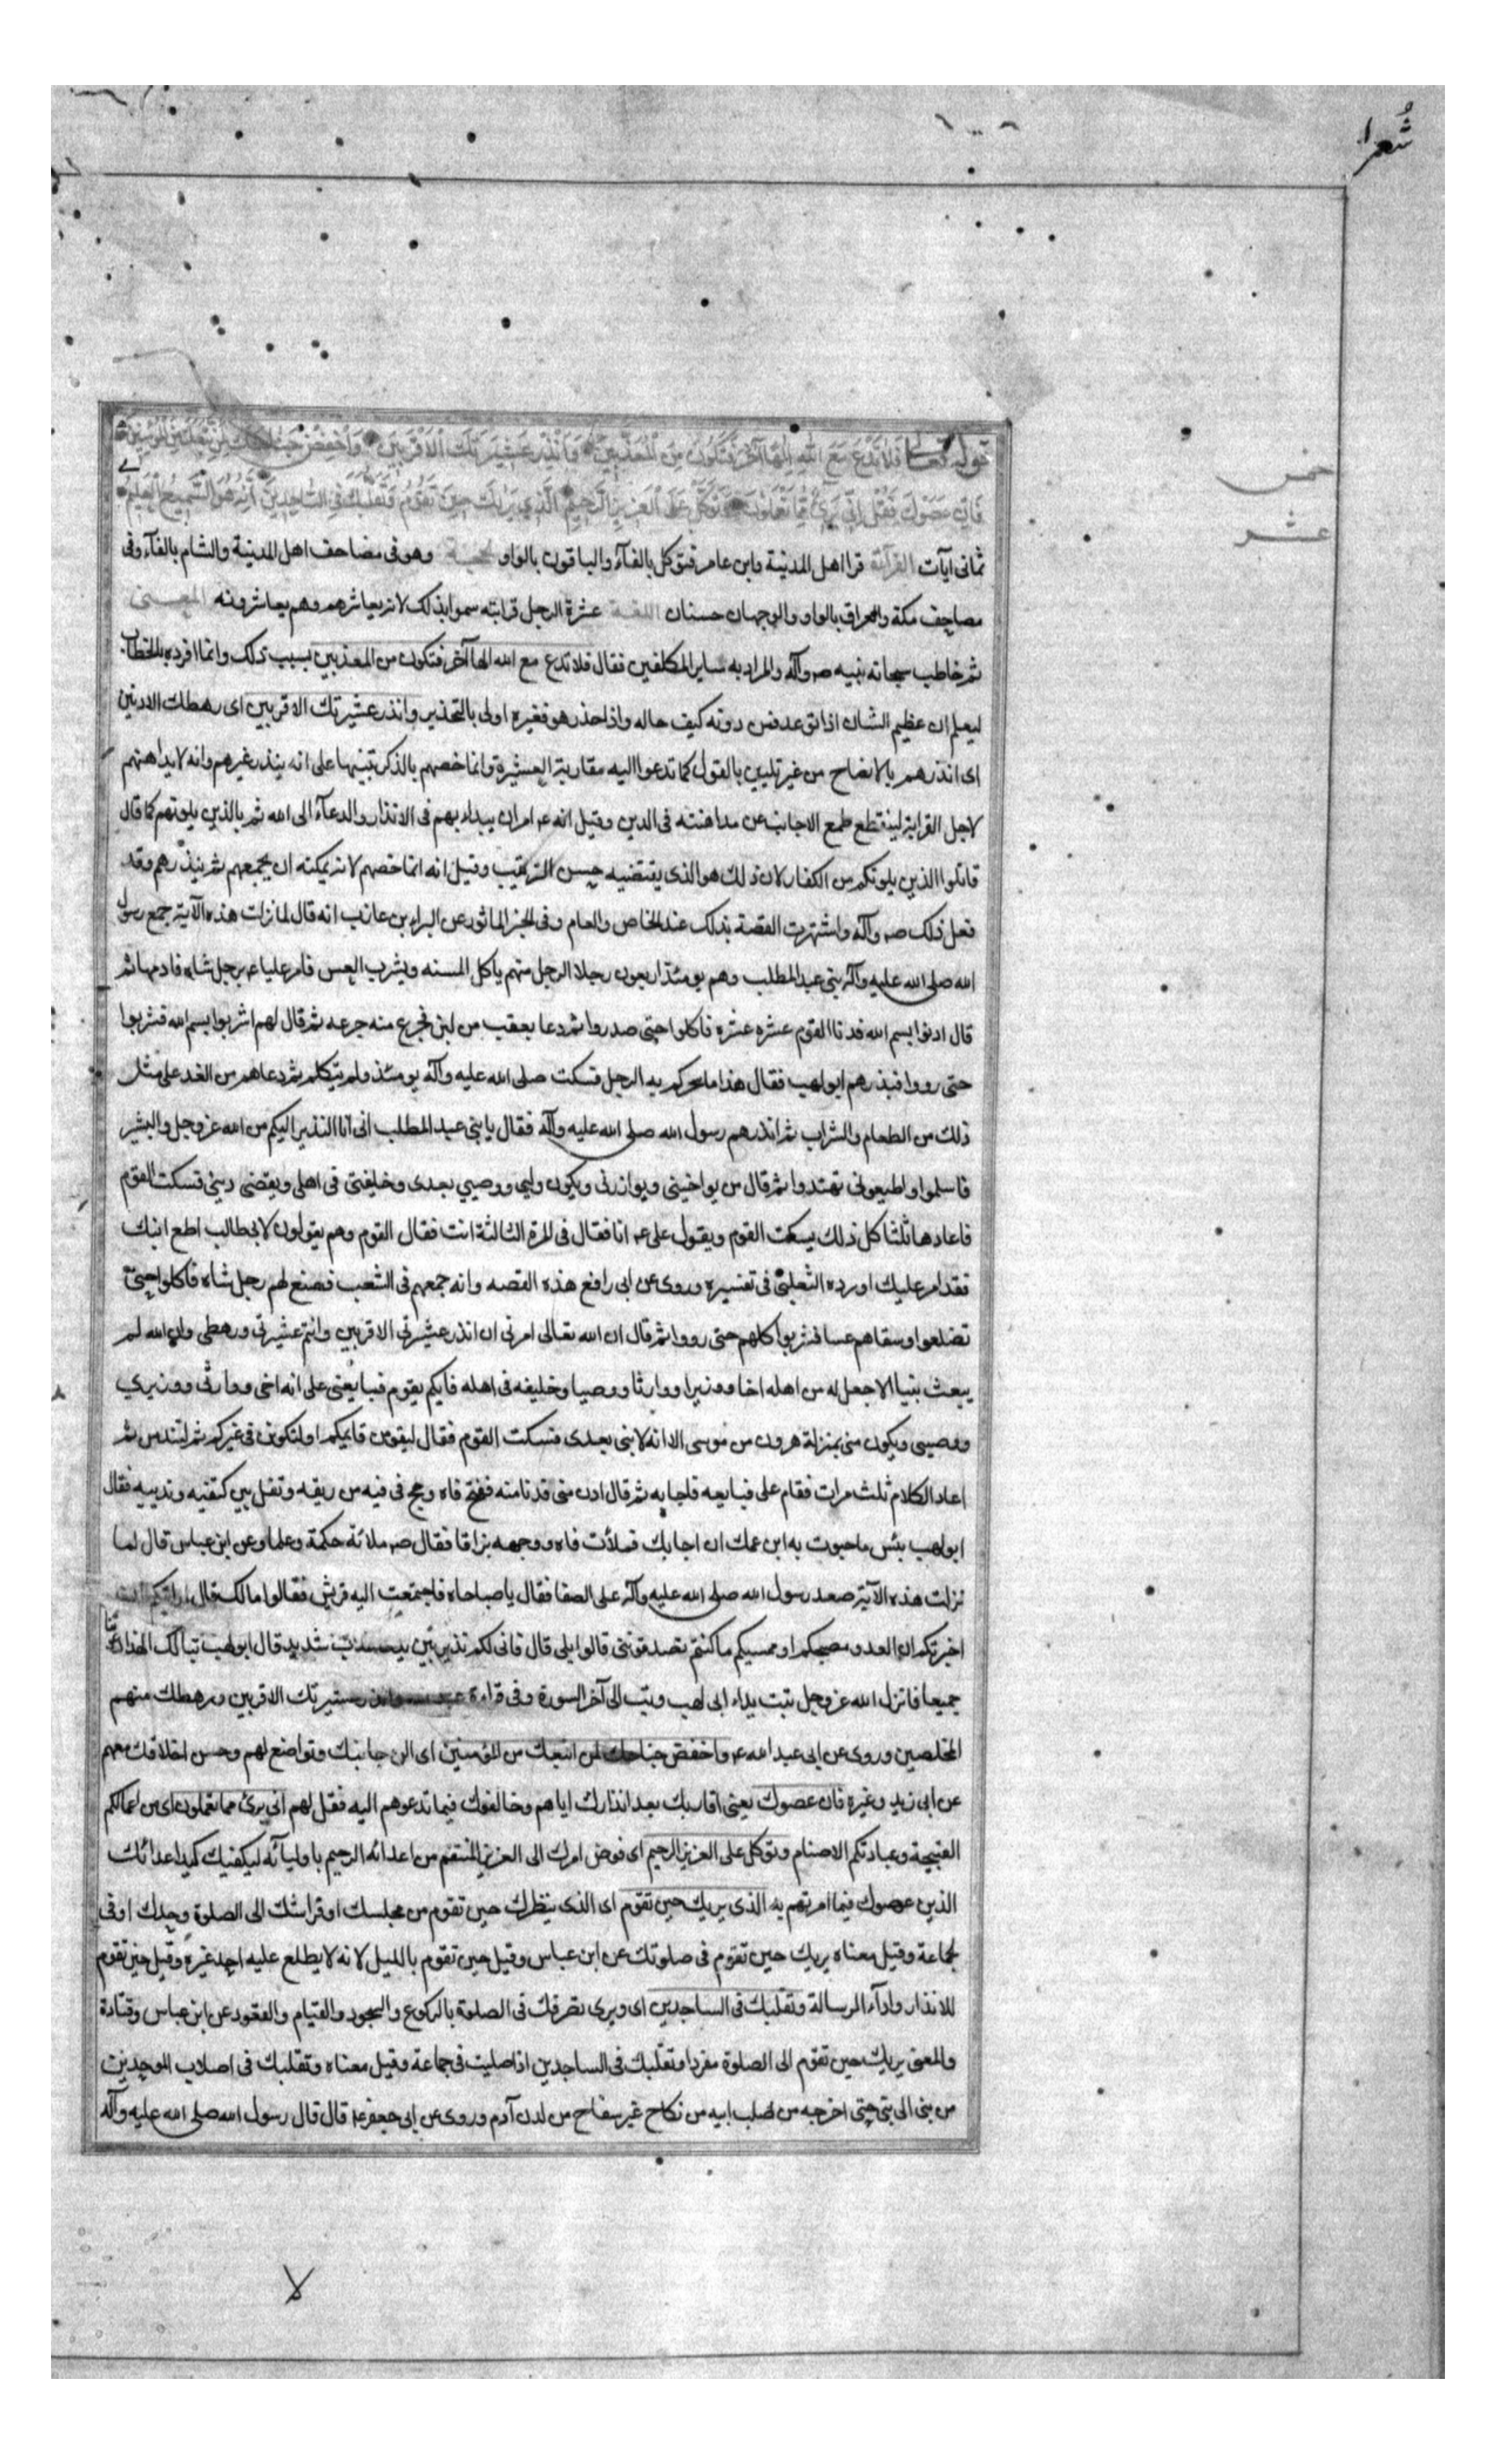 شُعرا
خمس
عشر
قوله تعالى فَلا تَدْعُ مَعَ اللهِ اِلٰهًا آخَرَ فَتَكُونَ مِنَ الْمُعَذَّبِينَ وَاَنْذِرْ عَشِيرَتَكَ الْاَقْرَبِينَ وَاخْفِضْ جَنَاحَكَ لِمَنِ اتَّبَعَكَ مِنَ الْمُؤْمِنِينَ
فَاِنْ عَصَوْكَ فَقُلْ اِنِّي بَرِيءٌ مِمَّا تَعْمَلُونَ وَتَوَكَّلْ عَلَى الْعَزِيزِ الرَّحِيمِ الَّذِي يَرٰيكَ حِينَ تَقُومُ وَتَقَلُّبَكَ فِي السَّاجِدِينَ اِنَّهُ هُوَ السَّمِيعُ الْعَلِيمُ
ثمانى آيات القرآءة قرا اهل المدينة وابن عامر فتوكل بالفآء والباقون بالواو الحجة وهو فى مصاحف اهل المدينة والشام بالفآء وفى
مصاحف مكة والعراق بالواو والوجهان حسنان اللغة عشرة الرجل قرابته سموا بذلك لانه يعاشرهم وهم يعاشرونه المعنى
ثم خاطب سبحانه نبيه صم وآله والمراد به ساير المكلفين فقال فلا تدع مع الله الها آخر فتكون من المعذبين بسبب ذلك وانما افرده بالخطاب
ليعلم ان عظيم الشان اذا توعد فمن دونه كيف حاله واذا حذر هو فغيره اولى بالتحذير وانذر عشيرتك الاقربين اى رهطك الادنين
اى انذرهم بالافصاح من غير تليين بالقول كما تدعوا اليه مقاربة العشيرة وانما خصهم بالذكر تنبيها على انه ينذر غيرهم وانه لا يداهنهم
لاجل القرابة لينقطع طمع الاجانب عن مداهنته فى الدين وقيل انه عم امر ان يبداء بهم فى الانذار والدعآء الى الله ثم بالذين يلونهم كما قال
قاتلوا الذين يلونكم من الكفار لان ذلك هو الذى يقتضيه حسن الترتيب وقيل انه انما خصهم لانه يمكنه ان يجمعهم ثم ينذرهم وقد
فعل ذلك صم وآله واشتهرت القصة بذلك عند الخاص والعام وفى الخبر الماثور عن البراء بن عازب انه قال لما نزلت هذه الآية جمع رسول
الله صلى الله عليه وآله بنى عبد المطلب وهم يومئذ اربعون رجلا الرجل منهم ياكل المسنه ويشرب العس فامر عليا عم برجل شاه فادمها ثم
قال ادنوا بسم الله فدنا القوم عشره عشره فاكلوا حتى صدروا ثم دعا بعقب من لبن فجرع منه جرعه ثم قال لهم اشربوا بسم الله فشربوا
حتى رووا فبدرهم ابو لهب فقال هذا ما سحركم به الرجل فسكت صلى الله عليه وآله يومئذ ولم يتكلم ثم دعاهم من الغد على مثل
ذلك من الطعام والشراب ثم انذرهم رسول الله صلى الله عليه وآله فقال يا بنى عبد المطلب انى انا النذير اليكم من الله عز وجل والبشير
فاسلموا واطيعونى تهتدوا ثم قال من يواخينى ويوازرنى ويكون وليى ووصيى بعدى وخليفتى فى اهلى ويقضى دينى فسكت القوم
فاعادها ثلثا كل ذلك يسكت القوم ويقول على عم انا فقال فى المرة الثالثة انت فقال القوم وهم يقولون لابى طالب اطع ابنك
فقد امر عليك اورده الثعلبى فى تفسيره وروى عن ابى رافع هذه القصه وانه جمعهم فى الشعب فصنع لهم رجل شاه فاكلوا حتى
تضلعوا وسقاهم عسا فشربوا كلهم حتى رووا ثم قال ان الله تعالى امرنى ان انذر عشيرتى الاقربين وانتم عشيرتى ورهطى وان الله لم
يبعث نبيا الا جعل له من اهله اخا ووزيرا ووارثا ووصيا وخليفه فى اهله فايكم يقوم فيبايعنى على انه اخى ووارثى ووزيرى
ووصيى ويكون منى بمنزلة هرون من موسى الا انه لا نبى بعدى فسكت القوم فقال ليقومن قائمكم او لتكونن فى غيركم ثم لتندمن ثم
اعاد الكلام ثلث مرات فقام على فبايعه فاجابه ثم قال ادن منى فدنا منه ففتح فاه ومج فى فيه من ريقه وتفل بين كتفيه وثدييه فقال
ابو لهب بئس ما حبوت به ابن عمك ان اجابك فملأت فاه ووجهه بزاقا فقال صم ملاته حكمة وعلما وعن ابن عباس قال لما
نزلت هذه الآية صعد رسول الله صلى الله عليه وآله على الصفا فقال يا صباحاه فاجتمعت اليه قريش فقالوا مالك فقال ارايتكم ان
اخبرتكم ان العدو مصبحكم او ممسيكم ما كنتم تصدقوننى قالوا بلى قال فانى لكم نذير بين يدى عذاب شديد قال ابو لهب تبا لك الهذا دعوتنا
جميعا فانزل الله عز وجل تبت يداء ابى لهب وتب الى آخر السورة وفى قراءة وانذر عشيرتك الاقربين ورهطك منهم
المخلصين وروى عن ابى عبد الله عم واخفض جناحك لمن اتبعك من المؤمنين اى الن جانبك وتواضع لهم وحسن اخلاقك معهم
عن ابى زيد وغيره فان عصوك يعنى اقاربك بعد انذارك اياهم وخالفوك فيما تدعوهم اليه فقل لهم انى برئ مما تعملون اى من اعمالكم
القبيحة وعبادتكم الاصنام وتوكل على العزيز الرحيم اى فوض امرك الى العزيز المنتقم من اعدائه الرحيم باوليآئه ليكفيك كيد اعدائك
الذين عصوك فيما امرتهم به الذى يريك حين تقوم اى الذى ينظرك حين تقوم من مجلسك او فراشك الى الصلوة وحدك او فى
لجماعة وقيل معناه يريك حين تقوم فى صلوتك عن ابن عباس وقيل حين تقوم بالليل لانه لا يطلع عليه احد غيره وقيل حين تقوم
للانذار وادآء الرسالة وتقلبك فى الساجدين اى ويرى تصرفك فى الصلوة بالركوع والسجود والقيام والقعود عن ابن عباس وقتادة
والمعنى يريك حين تقوم الى الصلوة مفردا وتقلبك فى الساجدين اذا صليت فى جماعة وقيل معناه وتقلبك فى اصلاب الموحدين
من نبى الى نبى حتى اخرجه من صلب ابيه من نكاح غير سفاح من لدن آدم وروى عن ابى جعفر عم قال قال رسول الله صلى الله عليه وآله
لا